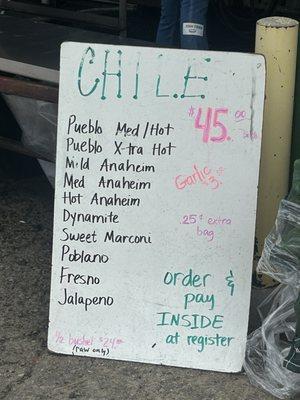 CHILE
Pueblo Med/Hot
Pueblo X-tra Hot
Mild Anaheim
Med Anaheim
Hot Anaheim
Dynamite
Sweet Marconi
Poblano
Fresno
Jalapeno
1/2 bushel $24.00
(raw only)
$45.00
Garlic
25¢ extra
bag
order &
pay
INSIDE
at register